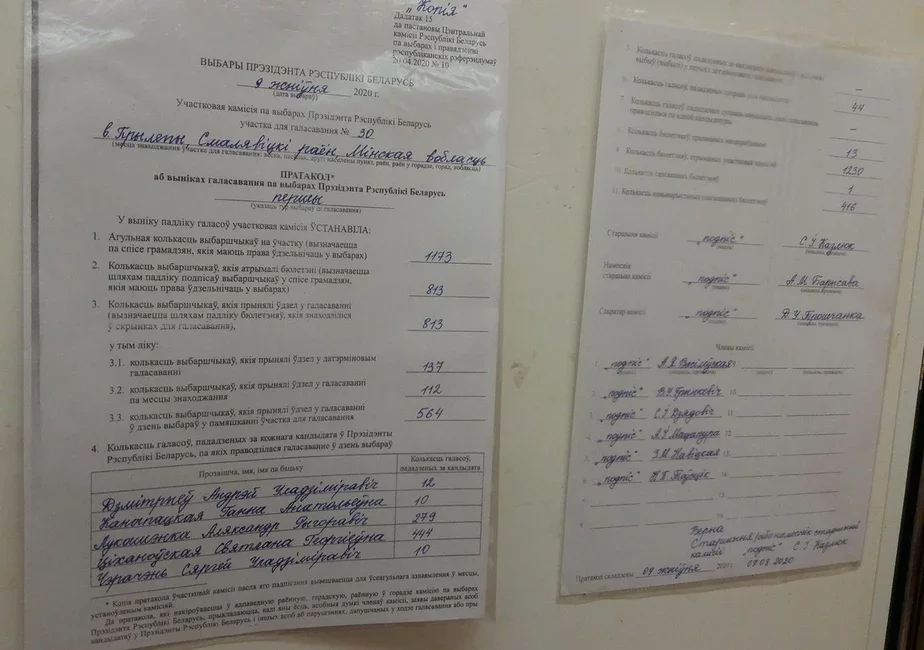 „Копія"
Дадатак 15
да пастановы Цэнтральнай
камісіі Рэспублікі Беларусь
па выбарах і правядзенні
рэспубліканскіх рэферэндумаў
20.04.2020 № 10
ВЫБАРЫ ПРЭЗІДЭНТА РЭСПУБЛІКІ БЕЛАРУСЬ
9 жніўня 2020 г.
(дата выбараў)
Участковая камісія па выбарах Прэзідэнта Рэспублікі Беларусь
участка для галасавання № 30
в. Прылепы, Смалявіцкі раён, Мінская вобласць
(месца знаходжання участка для галасавання: вобласць, раён, раён у горадзе, горад,
ПРАТАКОЛ*
аб выніках галасавання па выбарах Прэзідэнта Рэспублікі Беларусь
першы
(указаць тур выбараў ці галасавання)
У выніку падліку галасоў участковая камісія ЎСТАНАВІЛА:
1. Агульная колькасць выбаршчыкаў на ўчастку (вызначаецца
па спісе грамадзян, якія маюць права ўдзельнічаць у выбарах) 1173
2. Колькасць выбаршчыкаў, якія атрымалі бюлетэні (вызначаецца
шляхам падліку подпісаў выбаршчыкаў у спісе грамадзян,
якія маюць права ўдзельнічаць у выбарах) 813
3. Колькасць выбаршчыкаў, якія прынялі ўдзел у галасаванні
(вызначаецца шляхам падліку бюлетэняў, якія знаходзіліся
ў скрынках для галасавання), 813
у тым ліку:
3.1. колькасць выбаршчыкаў, якія прынялі ўдзел у датэрміновым
галасаванні 137
3.2. колькасць выбаршчыкаў, якія прынялі ўдзел у галасаванні
па месцы знаходжання 112
3.3. колькасць выбаршчыкаў, якія прынялі ўдзел у галасаванні
ў дзень выбараў у памяшканні ўчастка для галасавання 564
4. Колькасць галасоў, пададзеных за кожнага кандыдата ў Прэзідэнты
Рэспублікі Беларусь, па якіх праводзілася галасаванне ў дзень выбараў
Прозвішча, імя, імя па бацьку Колькасць галасоў,
пададзеных за кандыдата
Дзмітрыеў Андрэй Уладзіміравіч 12
Канапацкая Ганна Анатольеўна 10
Лукашэнка Аляксандр Рыгоравіч 279
Ціханоўская Святлана Георгіеўна 444
Чэрачэнь Сяргей Уладзіміравіч 10
* Копія пратакола ўчастковай камісіі пасля яго падпісання вывешваецца для ўсеагульнага азнаямлення ў месцы,
устаноўленым камісіяй.
Да пратакола, які накіроўваецца ў адпаведную раённую, гарадскую, раённую ў горадзе камісію па выбарах
Прэзідэнта Рэспублікі Беларусь, прыкладаюцца, калі яны ёсць, асобныя думкі членаў камісіі, заявы давераных асоб
кандыдатаў у Прэзідэнты Рэспублікі Беларусь і іншых асоб аб парушэннях, дапушчаных у ходзе галасавання або пры
5. Колькасць галасоў, пададзеных
–
6. Колькасць галасоў, пададзеных супраць
44
7. Колькасць галасоў, пададзеных
–
8. Колькасць бюлетэняў, прызнаных несапраўднымі 13
9. Колькасць бюлетэняў, атрыманых участковай камісіяй 1230
10. Колькасць сапсаваных бюлетэняў 1
11. Колькасць нявыкарыстаных бюлетэняў 416
Старшыня камісіі „подпіс" С.Ў Казлюк
Намеснік
старшыні камісіі „подпіс" А.М Барысава
Сакратар камісіі „подпіс"
Члены камісіі
1. „подпіс"
2. „подпіс"
3. „подпіс" Дзядовіч
4. „подпіс" Мацапура
5. „подпіс" З.М Навіцкая
6. „подпіс"
Верна
Старшыня участковай
камісіі „подпіс" С.Ў Казлюк
Пратакол складзены 09 жніўня 2020 г. 09.08.2020